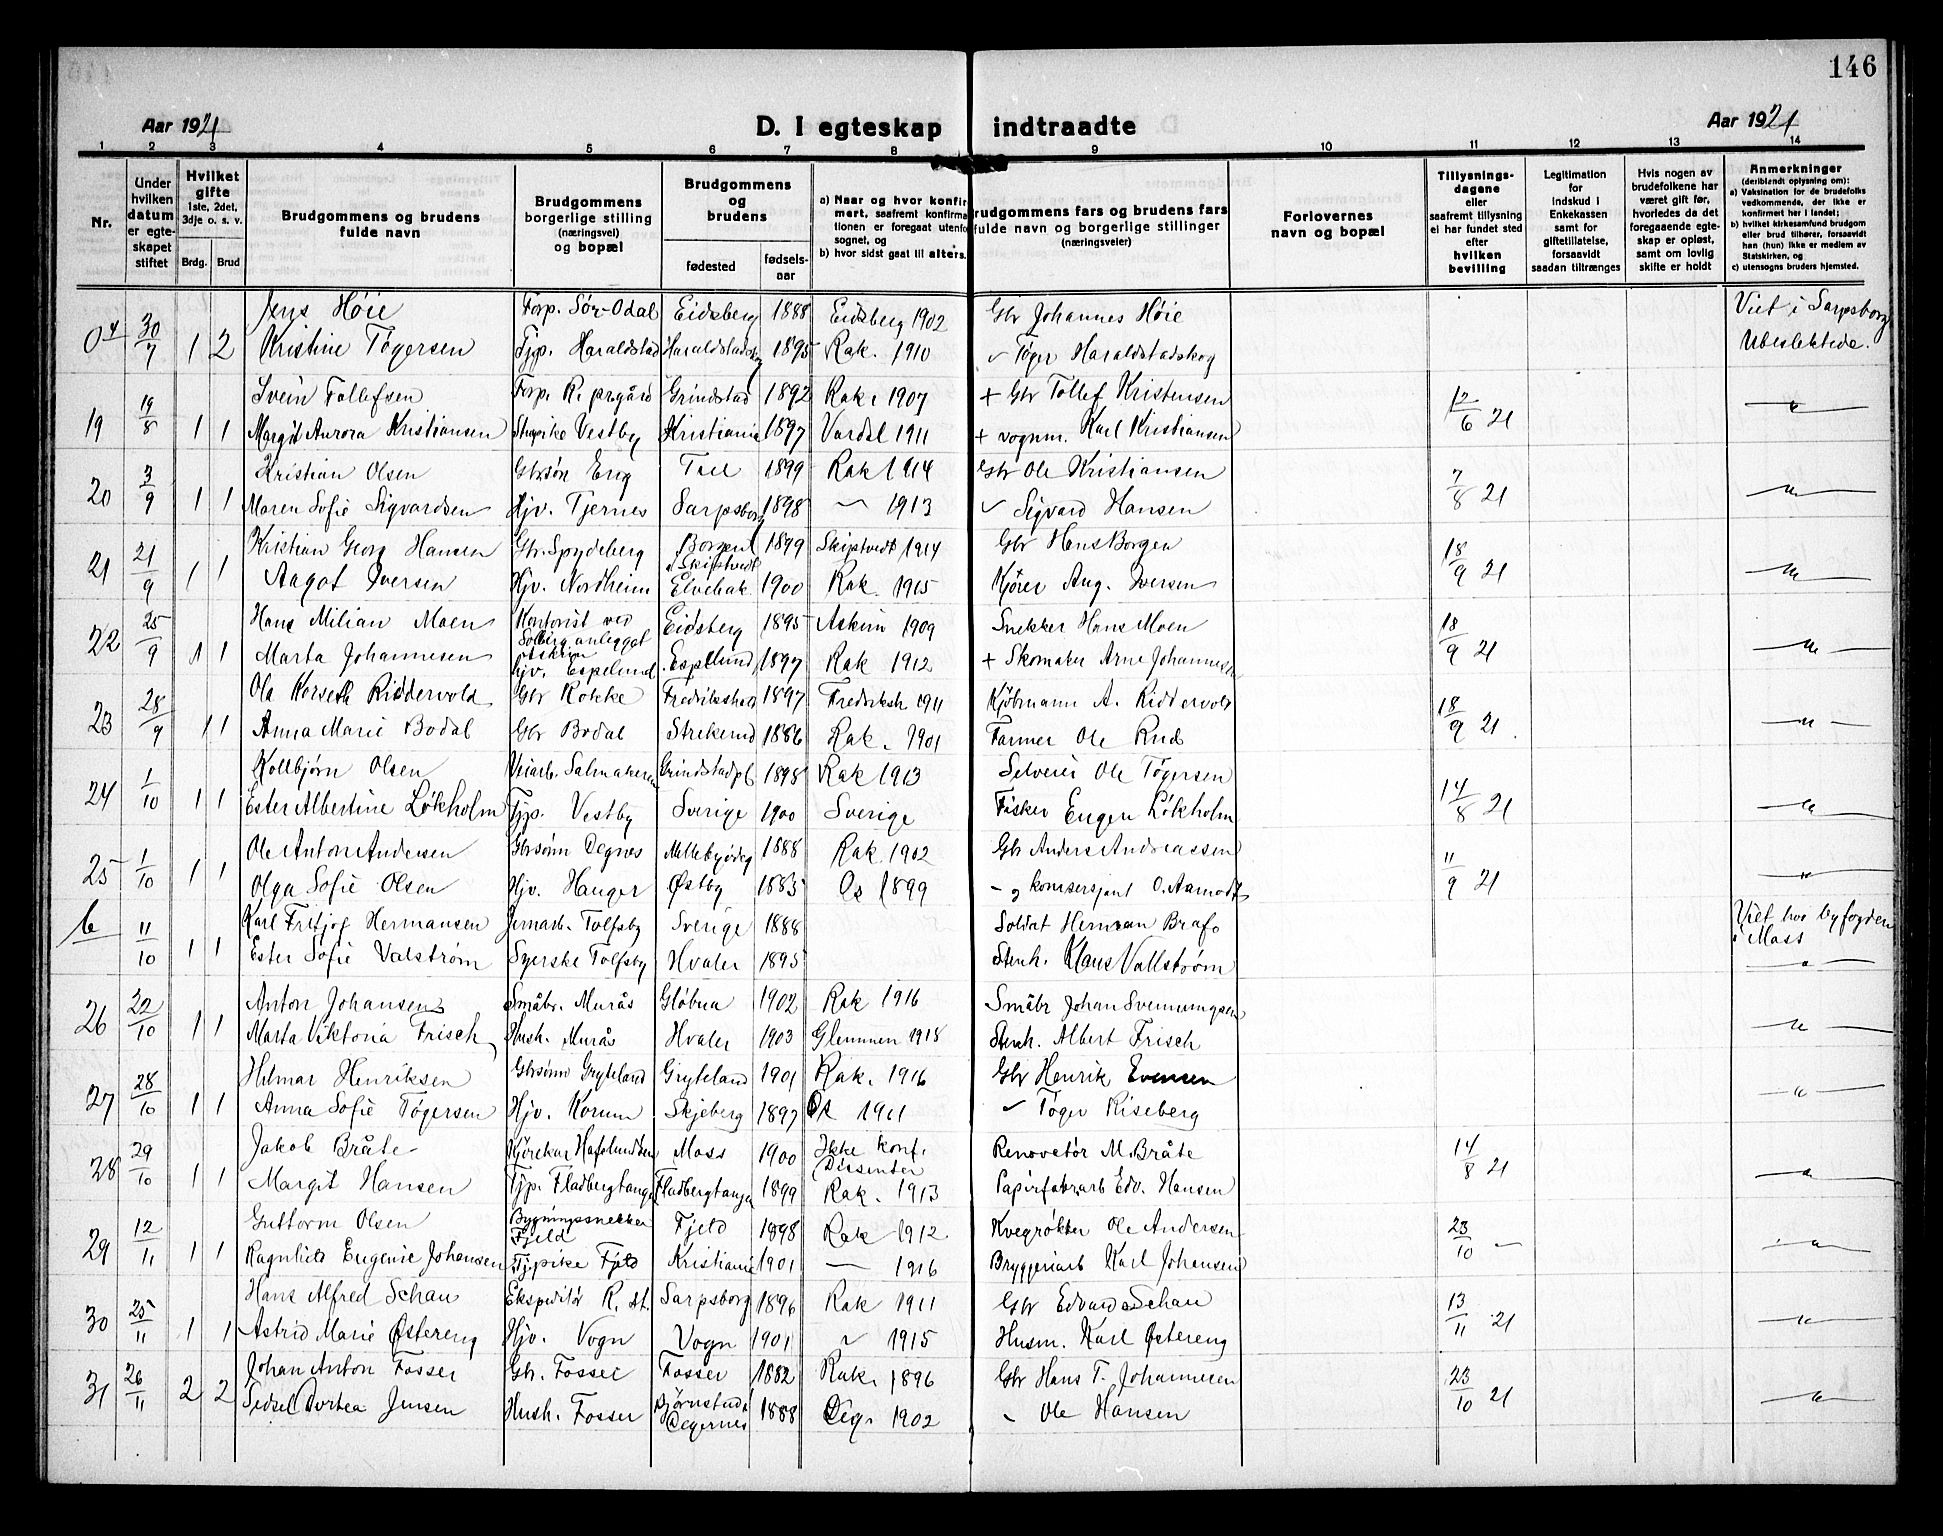 146
Aar 1921
D. I egteskap indtraadte
Aar 1921
1 2 3 4 5 6 7 8 9 10 11 12 13 14
Nr.
Under hvilken datum er egteskapet stiftet
Hvilket gifte 1ste, 2det, 3dje o. s. v.
Brdg. Brud
Brudgommens og brudens fulde navn
Brudgommens borgerlige stilling (næringsvei) og bopæl
Brudgommens og brudens
fødested
fødselsaar
a) Naar og hvor konfirmert, saafremt konfirmationen er foregaat utenfor sognet, og
b) hvor sidst gaat til alters.
Brudgommens fars og brudens fars fulde navn og borgerlige stillinger (næringsveier)
Forlovernes navn og bopæl
Tillysningsdagene eller saafremt tillysning ei har fundet sted efter hvilken bevilling
Legitimation for indskud i Enkekassen samt for giftetillatelse, forsaavidt saadan tiltrænges
Hvis nogen av brudefolkene har været gift før, hvorledes da det foregaaende egteskap er opløst, samt om lovlig skifte er holdt
Anmerkninger (deriblendt oplysning om):
a) Vaksination for de brudefolks vedkommende, der ikke er konfirmert her i landet;
b) hvilket kirkesamfund brudgom eller brud tilhører, forsaavidt han (hun) ikke er medlem av Statskirken, og
c) utensogns bruders hjemsted.
Jens Höie Forp. Sör-Odal Eidsberg 1888 Eidsberg 1902 Gbr Johannes Höie Viet i Sarpsborg
30/7 1 2 Kristine Tögersen Tjp. Haraldstad Haraldstadskog 1895 Rak. 1910 Töger Haraldstadskog Ubeslektede.
Svein Tollefsen Forp. R. prgård Grindstad 1892 Rak. 1907 + Gbr Tollef Kristensen
19 19/8 1 1 Margit Aurora Kristiansen Vestby Kristiania 1897 Vardal 1911 + vognm. Karl Kristiansen 12/6 21
Kristian Olsen Gbrsön Eng 1899 Rak 1914 Gbr Ole Kristiansen
20 3/9 1 1 Maren Sofie Sigvardsen Hjv. Tjernes Sarpsborg 1898 — 1913 Sigvard Hansen 7/8 21
Kristian Georg Hansen Gbr. Spydeberg Borgen i Skiptvedt 1899 Skiptvedt 1914 Gbr Hans Borgen
21 21/9 1 1 Aagot Iversen Hjv. Nordheim Elvebak 1900 Rak. 1915 Kjörer Aug. Iversen 18/9 21
Hans Milian Moen Kontorist ved Solberganlegget Askim Eidsberg 1895 Askim 1909 Snekker Hans Moen
22 25/9 1 1 Marta Johannesen hjv. Espelund Espelund 1897 Rak 1912 + Skomaker Arne Johannesen 18/9 21
Ola Korseth Riddervold Gbr Kokke Fredrikshald 1897 Fredriksh 1911 Kjöbmann A. Riddervold
23 28/9 1 1 Anna Marie Bodal Gbr Bodal Strekerud 1886 Rak. 1901 Farmer Ole Rud 18/9 21
Kollbjørn Olsen Veiarb. Salmakeren Grindstadpl 1898 Rak 1913 Selveier Ole Tögersen
24 1/10 1 1 Ester Albertine Lökholm Tjp. Vestby Sverige 1900 Sverige Fisker Eugen Lökholm 14/8 21
Ole Anton Andersen Gbrsönn Degnes 1888 Rak. 1902 Gbr Anders Andreassen
25 1/10 1 1 Olga Sofie Olsen Hjv. Hauger Østby 1883 Os 1899 O. Aamodt 11/9 21
b Karl Fritjof Hermansen Jernarb. Tolfsby Sverige 1888 Soldat Herman Brafo Viet hos byfogden
11/10 1 1 Ester Sofie Valström Syerske Tolfsby Hvaler 1895 Stenh. Klaus Vallström i Moss
Anton Johansen Småbr. Murås Glöbua 1902 Rak 1916 Småbr Johan Svenumgsen
26 22/10 1 1 Marta Viktoria Frisch Hush. Murås Hvaler 1903 Glemmen 1918 Stenh. Albert Frisch
Hilmar Henriksen Gbrsönn Gryteland Gryteland 1901 Rak. 1916 Gbr Henrik Evensen
27 28/10 1 1 Anna Sofie Tögersen Hjv. Korum Skjeberg 1897 1911 Töger Riseberg
Jakob Bråte Kjörekar Hafslundsen Moss 1900 Ikke konf. Dissenter Renovetör M. Bråte
28 29/10 1 1 Margit Hansen Tjp. Fladbergtange Fladbergtange 1899 Rak. 1913 Papirfabr.arb Edv. Hansen 14/8 21
Guttorm Olsen Bygningssnekker Fjeld Fjeld 1898 Rak 1912 Kvegrökter Ole Andersen
29 12/11 1 1 Ragnhild Eugenie Johansen Tjpike Fjeld Kristiania 1901 — 1916 Bryggeriarb Karl Johansen 23/10 —
Hans Alfred Schau Ekspeditör R. st. Sarpsborg 1896 Rak 1911 Gbr Edvard Schau
30 25/11 1 1 Astrid Marie Østereng Hjv. Vogn Vogn 1901 1915 Husm. Karl Østereng 13/11 21
Johan Anton Fosser Gbr. Fosser Fosser 1882 Rak. 1896 Gbr Hans T. Johannesen
31 26/11 2 2 Sidsel Dortea Jensen Hush. Fosser Björnstad i Degernes 1888 Deg. 1902 Ole Hansen 23/10 21